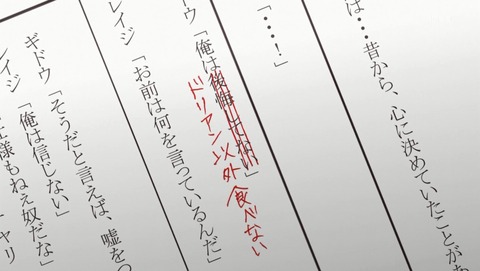 は・・・昔から、心に決めていたことが
「・・・！」
ウ「俺は後悔してない」
ドリアン以外食べない
レイジ「お前は何を言っているんだ」
ギドウ「そうだと言えば、嘘をつ
レイジ「俺は信じない」
様もねぇ奴だな」
ャリ